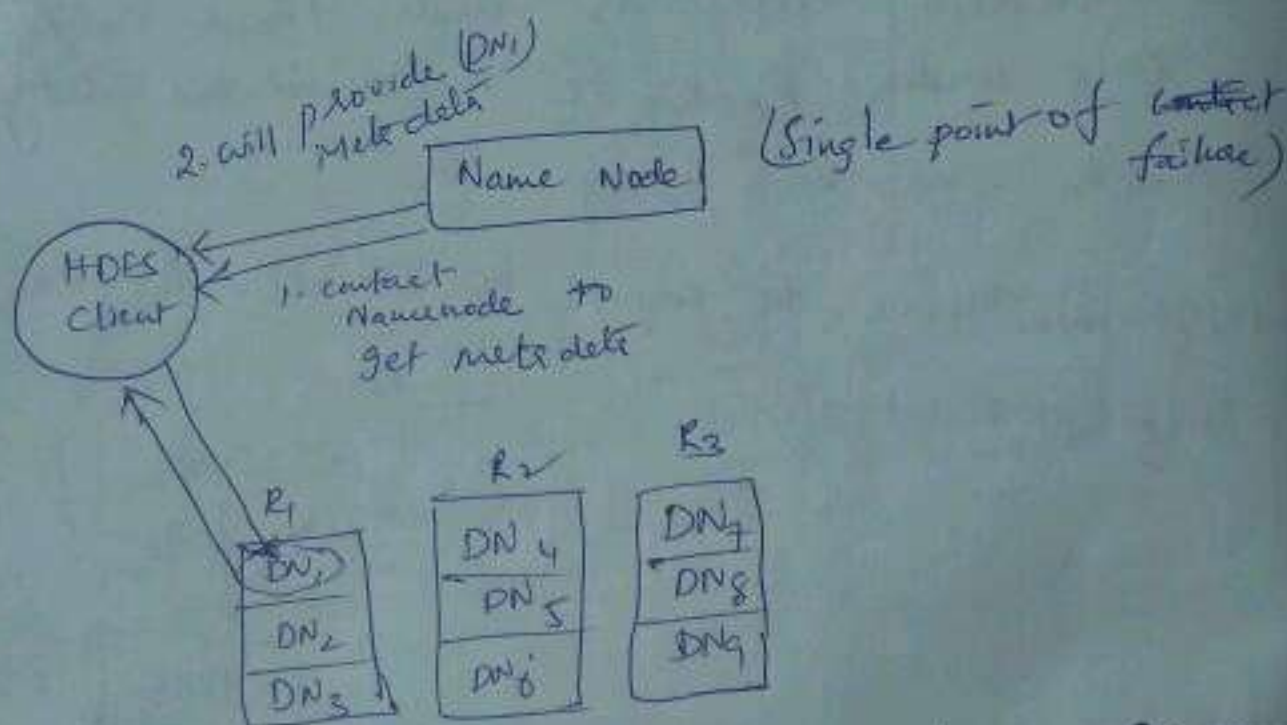 2. will provide (DN1)
metadata
Name Node
(Single point of contact
failure)
HDFS
Client
1. contact
Namenode to
get metadata
R1
DN1
DN2
DN3
R2
DN4
DN5
DN6
R3
DN7
DN8
DN9